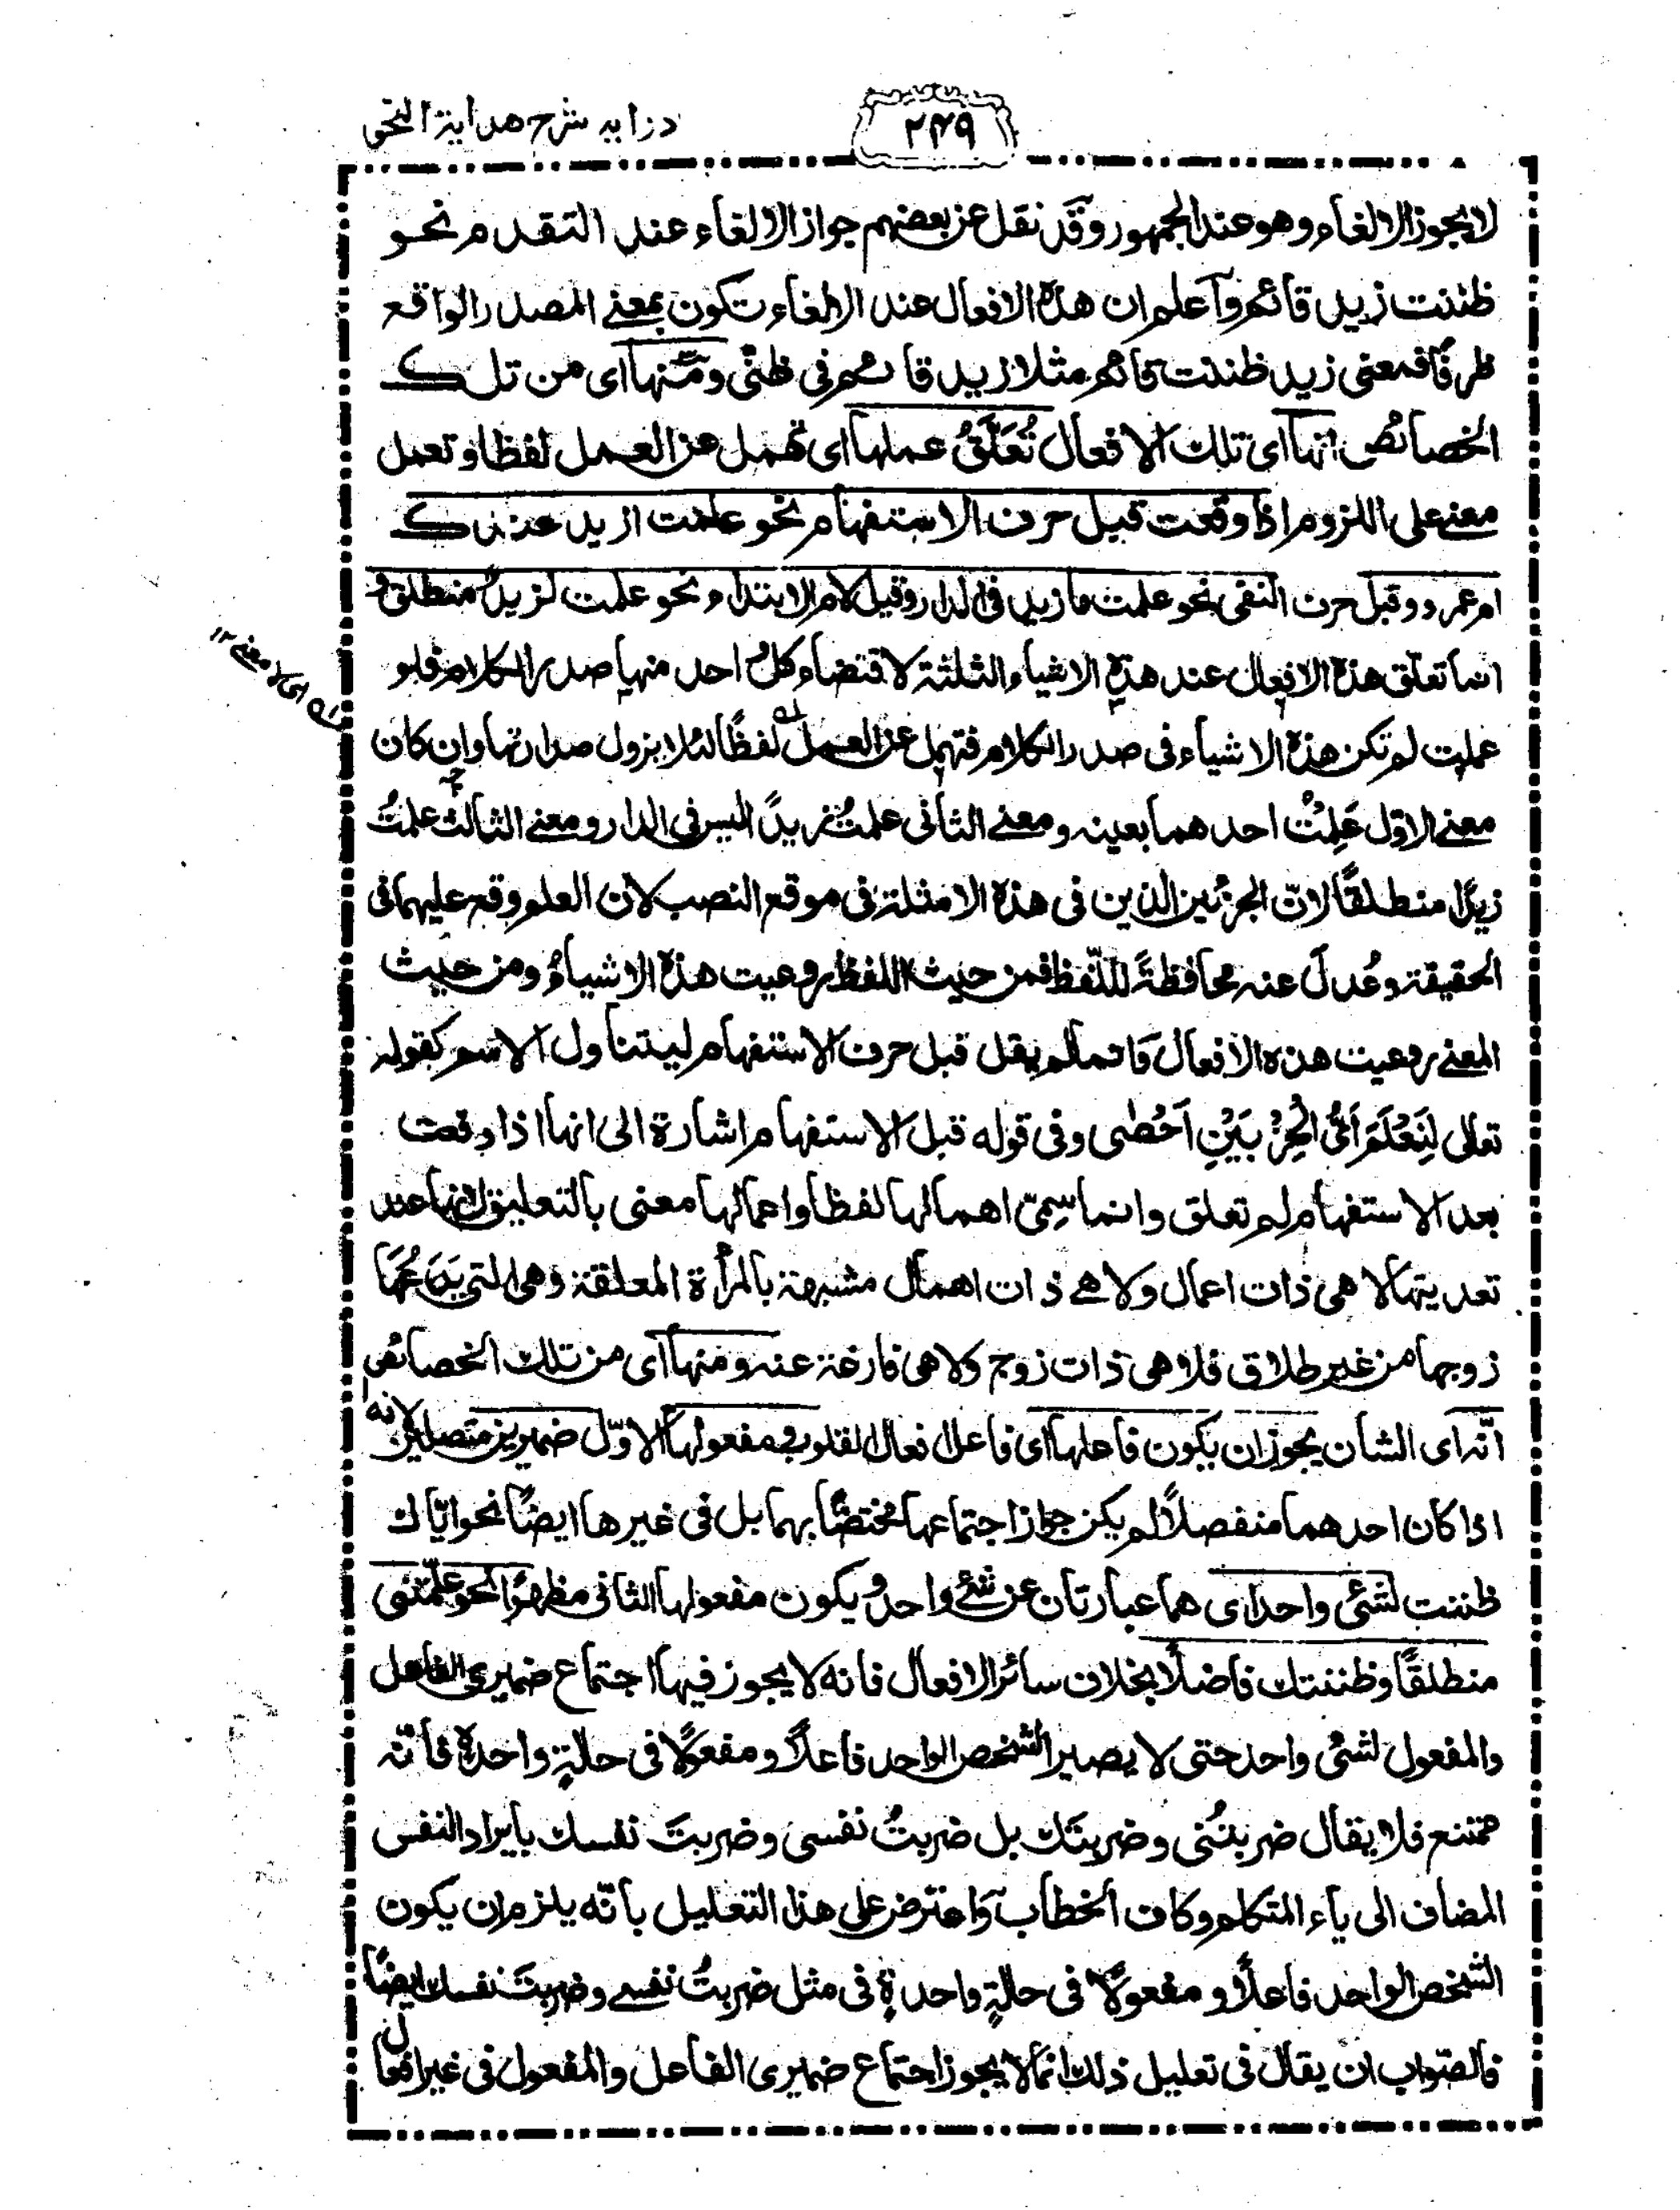 ۲۴۹
درایه شرح هدایة النحو
لا یجوز الالغاء وهو عند الجمهور وقد نقل عن بعضهم جواز الالغاء عند التقدم نحو
ظننت زید قائم وآعلم ان هذه الافعال عند الالغاء تکون بمعنی المصدر الواقع
ظرفًا فمعنی زید ظننت قائم مثلا زید قائم فی ظنّی ومنها ای من تلک
الخصائص انها ای تلک الافعال تُعَلَّقُ عملها ای تهمل عن العمل لفظا وتعمل
معنی علی اللزوم اذا وقعت قبل حرف الاستفهام نحو علمت ازید عندک
ام عمرو وقبل حرف النفی نحو علمت ما زید فی الدار وقبل لام الابتداء نحو علمت لزیدٌ منطلق و
انما تعلّق هذه الافعال عند هذه الاشیاء الثلثة لاقتضاء کل واحد منها صدر الکلام فلو
عملت لم تکن هذه الاشیاء فی صدر الکلام فتهمل عن العمل لفظًا لئلا یزول صدارتها وان کان
له ای لا معنی ۱۲
معنی الاوّل عَلِمْتُ احدهما بعینه ومعنی الثانی علمتُ زیدًا لیس فی الدار ومعنی الثالث علمتُ
زیدًا منطلقًا لانّ الجزئین الذین فی هذه الامثلة فی موقع النصب لان العلم وقع علیهما فی
الحقیقة وعُدِلَ عنه محافظةً للّفظ فمن حیث اللفظ روعیت هذه الاشیاءُ ومن حیث
المعنی روعیت هذه الافعال وَانما لم یقل قبل حرف الاستفهام لیتناول الاسم کقوله
تعالی لِنَعْلَمَ اَیُّ الْحِزْبَیْنِ اَحْصٰی وفی قوله قبل الاستفهام اشارة الی انها اذا وقعت
بعد الاستفهام لم تعلق وانما سمّی اهمالها لفظا واعمالها معنی بالتعلیق لانها عند
تعدیتها لا هی ذات اعمال ولا هی ذات اهمال مشبهة بالمرأة المعلقة وهی التی یَدَعُهَا
زوجها من غیر طلاق فلا هی ذات زوج ولا هی فارغة عنه ومنها ای من تلک الخصائص
انّه ای الشان یجوز ان یکون فاعلها ای فاعل افعال القلوب و مفعولها الاوّل ضمیرین متصلین لانه
اذا کان احدهما منفصلًا لم یکن جواز اجتماعها مختصًّا بهما بل فی غیرها ایضًا نحو ایّاک
ظننت لشئی واحد ای هما عبارتان عن شئ واحد و یکون مفعولها الثانی مظهرًا نحو علمتنی
منطلقًا وظننتک فاضلًا بخلاف سائر الافعال فانه لا یجوز فیها اجتماع ضمیری الفاعل
والمفعول لشئ واحد حتی لا یصیر الشخص الواحد فاعلًا و مفعولًا فی حالةٍ واحدةٍ فانّه
ممتنع فلا یقال ضربتُنی وضربتَک بل ضربتُ نفسی وضربتَ نفسک بایراد النفس
المضاف الی یاء المتکلم وکاف الخطاب وَاعترض علی هذا التعلیل بانّه یلزم ان یکون
الشخص الواحد فاعلًا و مفعولًا فی حالةٍ واحدةٍ فی مثل ضربتُ نفسی وضربتَ نفسک ایضًا
فالصّواب ان یقال فی تعلیل ذلک انما لا یجوز اجتماع ضمیری الفاعل والمفعول فی غیر افعال